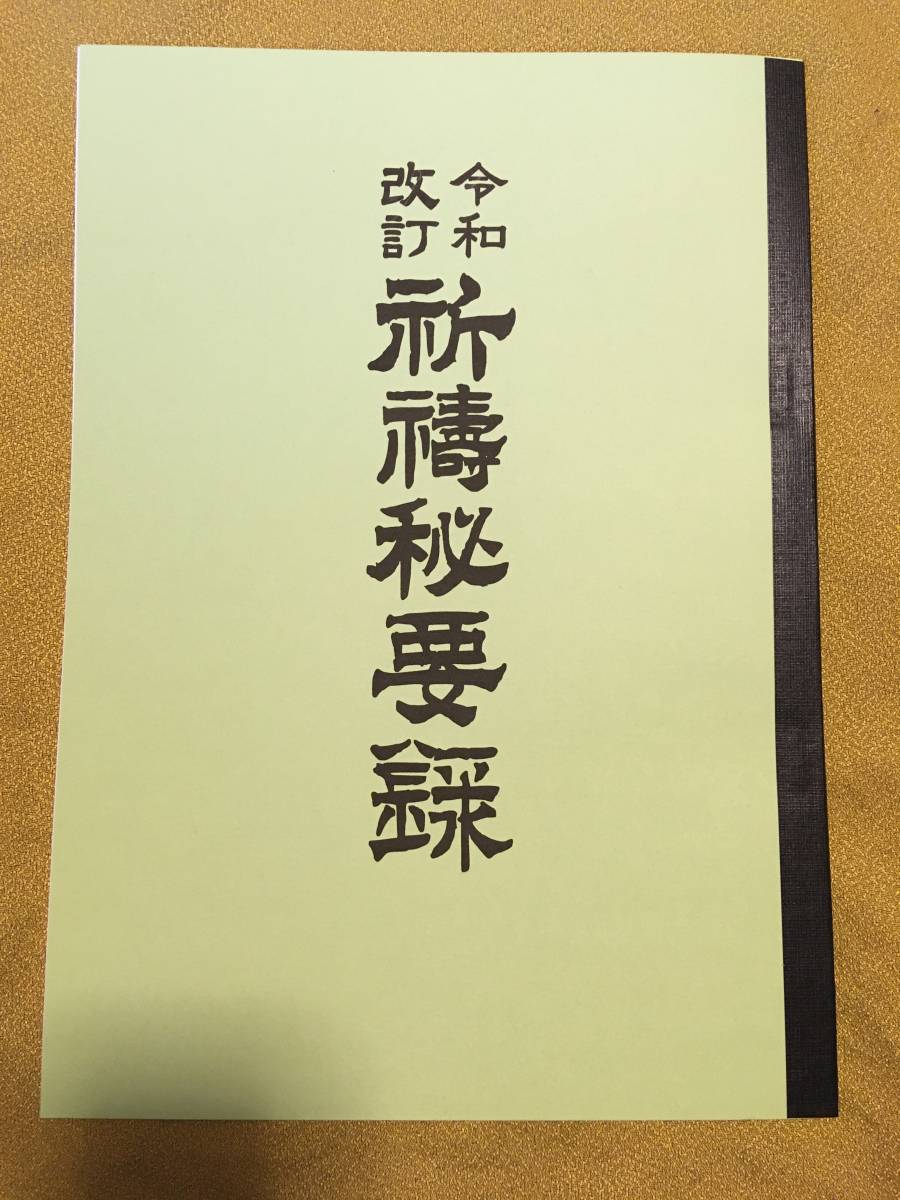 令和
改訂
祈禱秘要録